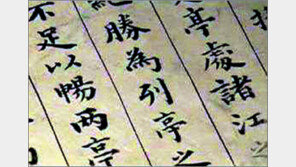 亭處諸江
勝為列亭之
不足以暢兩亭